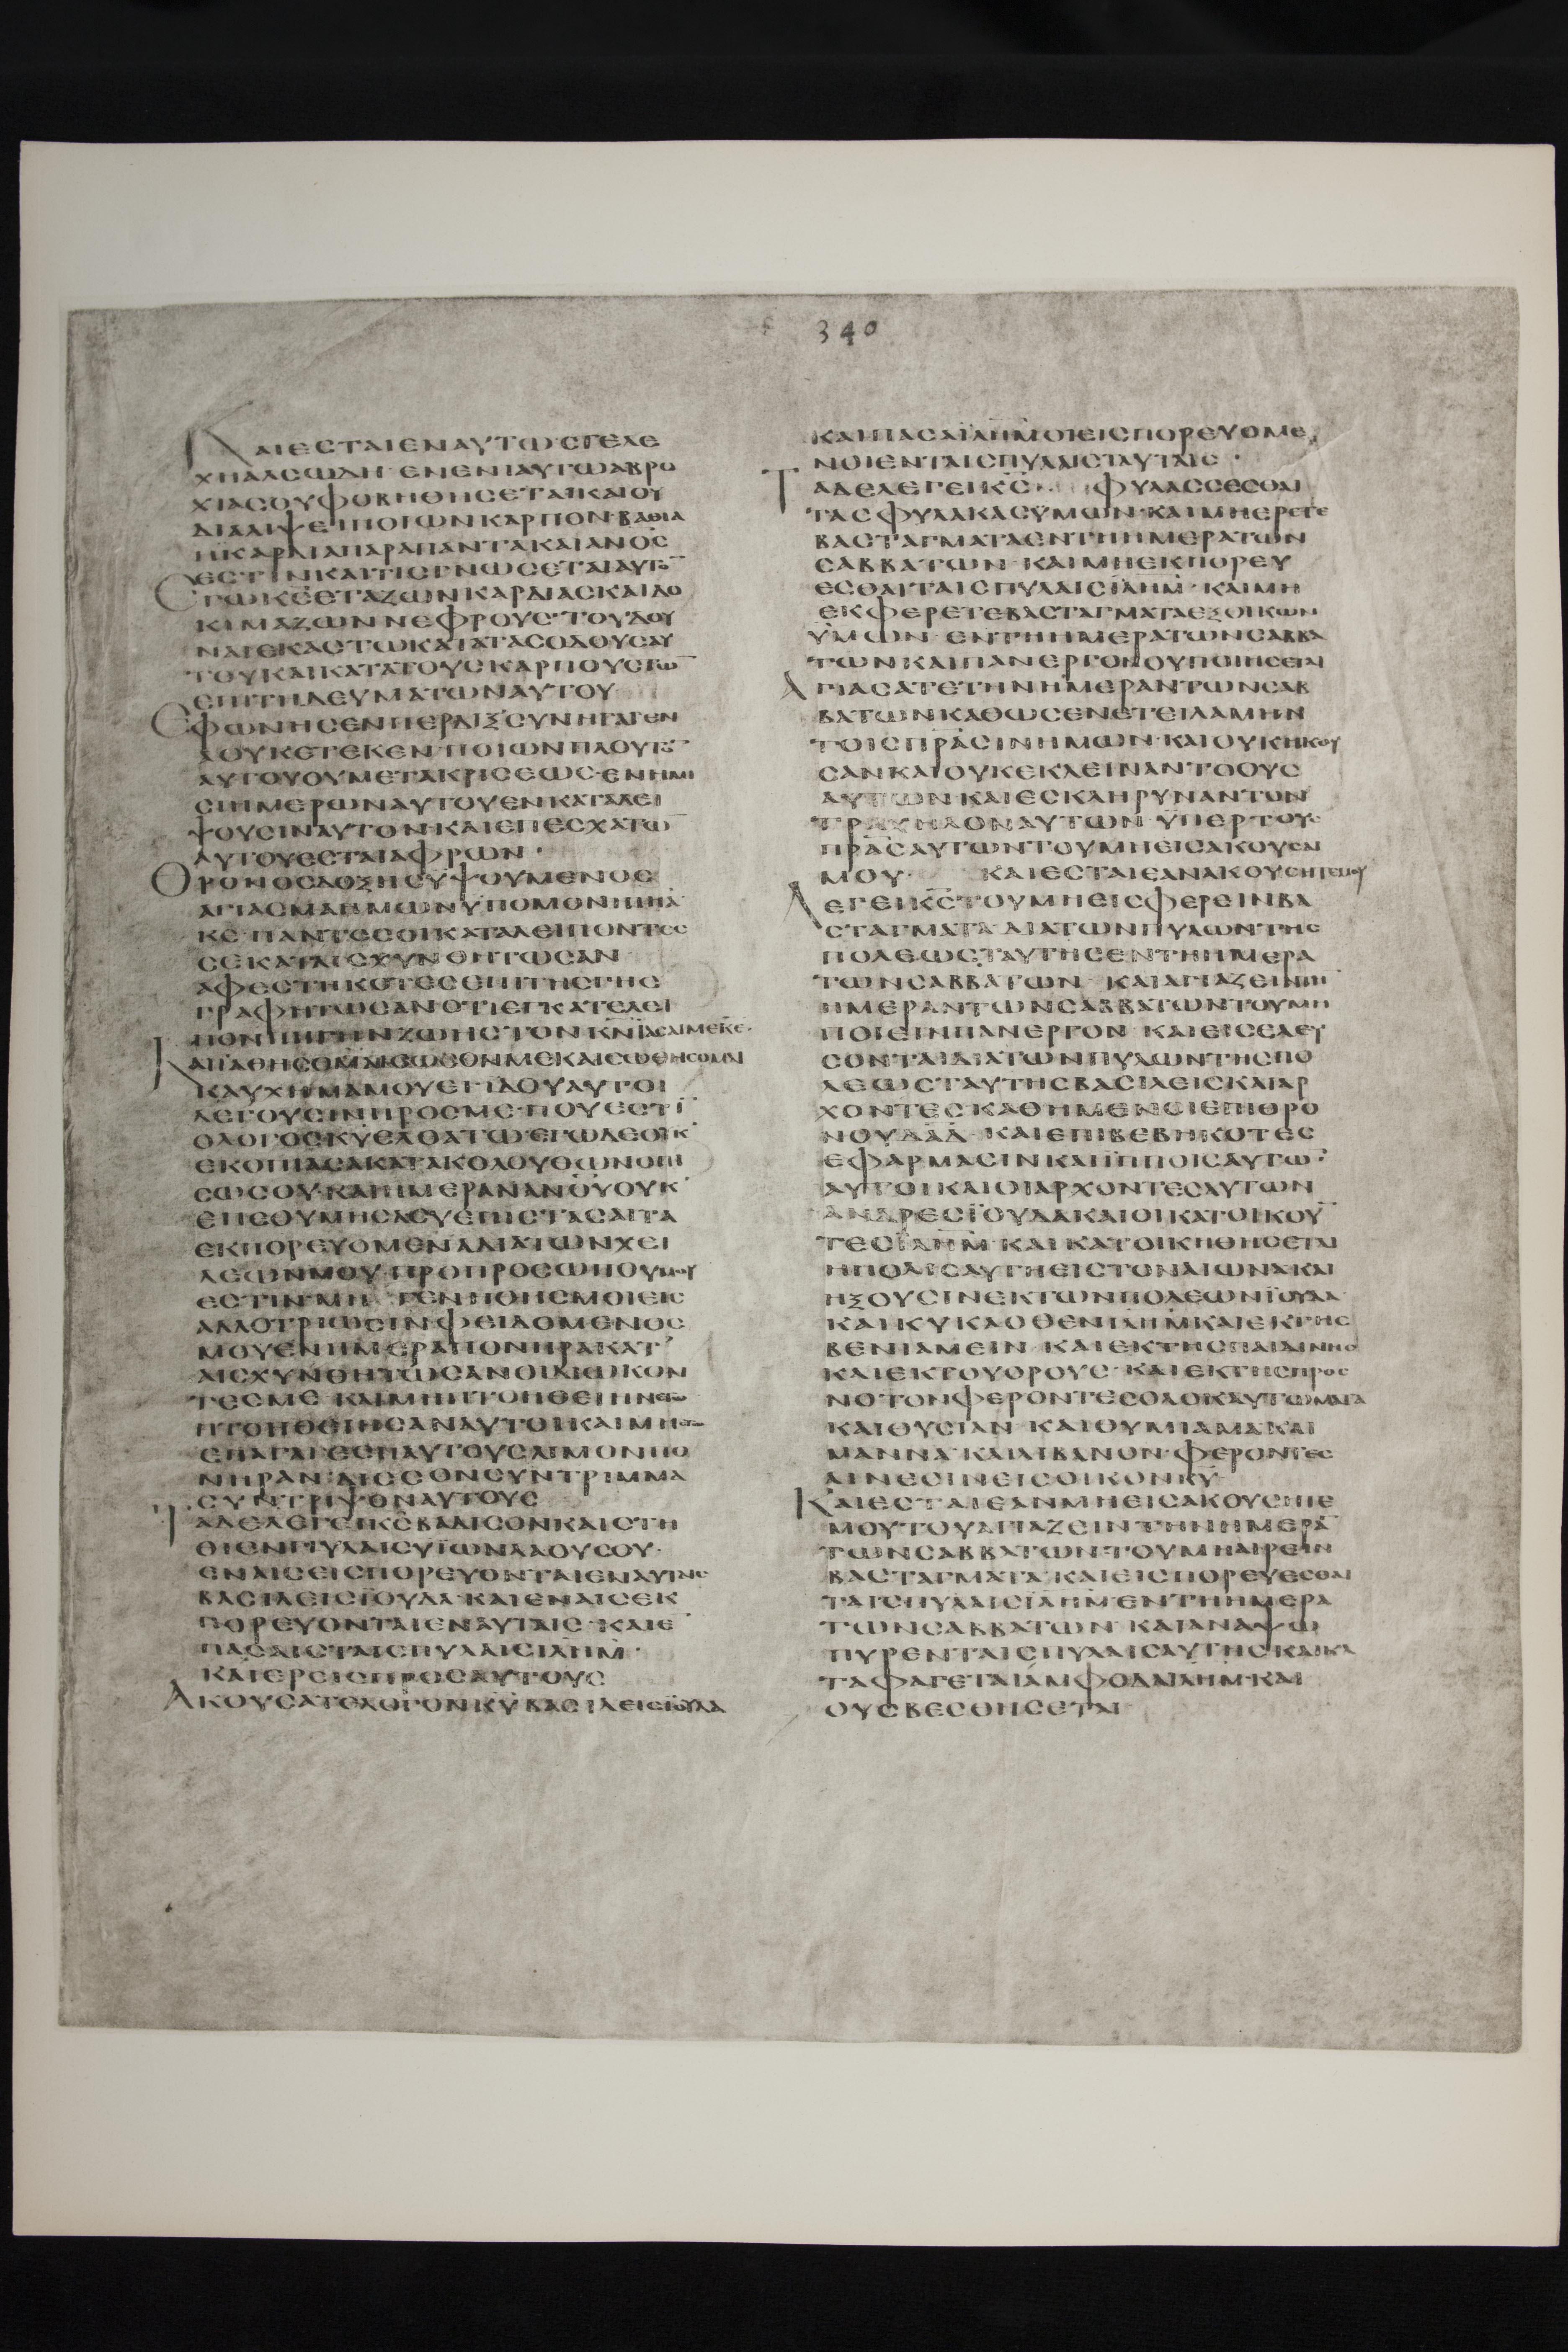 340
ΚΑΙΕCΤΑΙΕΝΑΥΤΩ·CΤΕΛΕ
ΧΗΑΛCΩΔΗ·ΕΝΕΝΙΑΥΤΩΑΒΡΟ
ΧΙΑCΟΥΦΟΒΗΘΗCΕΤΑΙΚΑΙΟΥ
ΔΙΑΛΙΨΕΙΠΟΙΩΝΚΑΡΠΟΝ·ΒΑΘΙΑ
ΗΚΑΡΔΙΑΠΑΡΑΠΑΝΤΑΚΑΙΑΝΟC
ΕCΤΙΝΚΑΙΤΙCΓΝΩCΕΤΑΙΑΥΤΟ̄
ΕΓΩΚCΕΤΑΖΩΝΚΑΡΔΙΑCΚΑΙΔΟ
ΚΙΜΑΖΩΝΝΕΦΡΟΥC·ΤΟΥΔΟΥ
ΝΑΙΕΚΑCΤΩΚΑΤΑΤΑCΟΔΟΥCΑΥ
ΤΟΥΚΑΙΚΑΤΑΤΟΥCΚΑΡΠΟΥCΤΩ̄
ΕΠΙΤΗΔΕΥΜΑΤΩΝΑΥΤΟΥ
ΕΦΩΝΗCΕΝΠΕΡΔΙΞCΥΝΗΓΑΓΕΝ
ΑΟΥΚΕΤΕΚΕΝ·ΠΟΙΩΝΠΛΟΥΤΟ̄
ΑΥΤΟΥΟΥΜΕΤΑΚΡΙCΕΩC·ΕΝΗΜΙ
CΙΗΜΕΡΩΝΑΥΤΟΥΕΝΚΑΤΑΛΕΙ
ΨΟΥCΙΝΑΥΤΟΝ·ΚΑΙΕΠΕCΧΑΤΩ̄
ΑΥΤΟΥΕCΤΑΙΑΦΡΩΝ·
ΘΡΟΝΟCΔΟΞΗCΥΨΟΥΜΕΝΟC
ΑΓΙΑCΜΑΗΜΩΝΥΠΟΜΟΝΗΙΗΛ
ΚΕ·ΠΑΝΤΕCΟΙΚΑΤΑΛΕΙΠΟΝΤΕC
CΕΚΑΤΑΙCΧΥΝΘΗΤΩCΑΝ
ΑΦΕCΤΗΚΟΤΕCΕΠΙΤΗCΓΗC
ΓΡΑΦΗΤΩCΑΝΟΤΙΕΓΚΑΤΕΛΕΙ
ΠΟΝΠΗΓΗΝΖΩΗCΤΟΝΚΝΙΑCΑΙΜΕΚΕ·
ΚΑΙΙΑΘΗCΟΜΑΙCΩCΟΝΜΕΚΑΙCΩΘΗCΟΜΑΙ
ΚΑΥΧΗΜΑΜΟΥΕΙΙΔΟΥΑΥΤΟΙ
ΛΕΓΟΥCΙΝΠΡΟCΜΕ·ΠΟΥΕCΤῙ
ΟΛΟΓΟCΚΥΕΛΘΑΤΩΕΓΩΔΕΟΥΚ
ΕΚΟΠΙΑCΑΚΑΤΑΚΟΛΟΥΘΩΝΟΠΙ
CΩCΟΥ·ΚΑΙΗΜΕΡΑΝΑΝΟΥΟΥΚ
ΕΠΕΘΥΜΗCΑCΥΕΠΙCΤΑCΑΙΤΑ
ΕΚΠΟΡΕΥΟΜΕΝΑΔΙΑΤΩΝΧΕΙ
ΛΕΩΝΜΟΥ·ΠΡΟΠΡΟCΩΠΟΥCΟΥ
ΕCΤΙΝ·ΜΗ ΓΕΝΗΘΗCΜΟΙΕΙC
ΑΛΛΟΤΡΙΩCΙΝΦΕΙΔΟΜΕΝΟC
ΜΟΥΕΝΗΜΕΡΑΠΟΝΗΡΑΚΑΤ
ΑΙCΧΥΝΘΗΤΩCΑΝΟΙΔΙΩΚΟΝ
ΤΕCΜΕ ΚΑΙΜΗΠΤΟΗΘΕΙΗΝΕΓΩ
ΠΤΟΗΘΕΙΗCΑΝΑΥΤΟΙΚΑΙΜΗΕΓΩ
ΕΠΑΓΑΓΕΕΠΑΥΤΟΥCΑΙΜΟΝΠΟ
ΝΗΡΑΝ·ΔΙCCΟΝCΥΝΤΡΙΜΜΑ
CΥΝΤΡΙΨΟΝΑΥΤΟΥC
ΤΑΔΕΛΕΓΕΙΚCΒΑΔΙCΟΝΚΑΙCΤΗ
ΘΙΕΝΠΥΛΑΙCΥΙΩΝΛΑΟΥCΟΥ·
ΕΝΑΙCΕΙCΠΟΡΕΥΟΝΤΑΙΕΝΑΥΤΑΙC
ΒΑCΙΛΕΙCΙΟΥΔΑ·ΚΑΙΕΝΑΙCΕΚ
ΠΟΡΕΥΟΝΤΑΙΕΝΑΥΤΑΙC·ΚΑΙΕ̄
ΠΑCΑΙCΤΑΙCΠΥΛΑΙCΙΛΗΜ·
ΚΑΙΕΡΕΙCΠΡΟCΑΥΤΟΥC
ΑΚΟΥCΑΤΕΛΟΓΟΝΚΥΒΑCΙΛΕΙCΙΟΥΔΑ
ΚΑΙΠΑCΑΙΛΗΜΟΙΕΙCΠΟΡΕΥΟΜΕ
ΝΟΙΕΝΤΑΙCΠΥΛΑΙCΤΑΥΤΑΙC·
ΤΑΔΕΛΕΓΕΙΚC· ΦΥΛΑCCΕCΘΑΙ
ΤΑCΦΥΛΑΚΑCΥΜΩΝ·ΚΑΙΜΗΕΡΕΤΕ
ΒΑCΤΑΓΜΑΤΑΕΝΤΗΗΜΕΡΑΤΩΝ
CΑΒΒΑΤΩΝ·ΚΑΙΜΗΕΚΠΟΡΕΥ
ΕCΘΑΙΤΑΙCΠΥΛΑΙCΙΛΗΜ·ΚΑΙΜΗ
ΕΚΦΕΡΕΤΕΒΑCΤΑΓΜΑΤΑΕΞΟΙΚΩΝ
ΥΜΩΝ·ΕΝΤΗΗΜΕΡΑΤΩΝCΑΒΒΑ
ΤΩΝΚΑΙΠΑΝΕΡΓΟΝΟΥΠΟΙΗCΕΤΑΙ
ΑΓΙΑCΑΤΕΤΗΝΗΜΕΡΑΝΤΩΝCΑΒ
ΒΑΤΩΝΚΑΘΩCΕΝΕΤΕΙΛΑΜΗΝ
ΤΟΙCΠΡΑCΙΝΗΜΩΝ·ΚΑΙΟΥΚΗΚΟΥ
CΑΝΚΑΙΟΥΚΕΚΛΕΙΝΑΝΤΟΟΥC
ΑΥΤΩΝΚΑΙΕCΚΛΗΡΥΝΑΝΤΟΝ
ΤΡΑΧΗΛΟΝΑΥΤΩΝ·ΥΠΕΡΤΟΥC
ΠΡΑCΑΥΤΩΝΤΟΥΜΗΕΙCΑΚΟΥCΑΙ
ΜΟΥ· ΚΑΙΕCΤΑΙΕΑΝΑΚΟΥCΗΤΕΜΟΥ
ΛΕΓΕΙΚCΤΟΥΜΗΕΙCΦΕΡΕΙΝΒΑ
CΤΑΓΜΑΤΑΔΙΑΤΩΝΠΥΛΩΝΤΗC
ΠΟΛΕΩCΤΑΥΤΗCΕΝΤΗΗΜΕΡΑ
ΤΩΝCΑΒΒΑΤΩΝ ΚΑΙΑΓΙΑΖΕΙΝΤΗ
ΗΜΕΡΑΝΤΩΝCΑΒΒΑΤΩΝΤΟΥΜΗ
ΠΟΙΕΙΝΠΑΝΕΡΓΟΝ·ΚΑΙΕΙCΕΛΕΥ
CΟΝΤΑΙΔΙΑΤΩΝΠΥΛΩΝΤΗCΠΟ
ΛΕΩCΤΑΥΤΗCΒΑCΙΛΕΙCΚΑΙΑΡ
ΧΟΝΤΕCΚΑΘΗΜΕΝΟΙΕΠΙΘΡΟ
ΝΟΥΔΑΔ·ΚΑΙΕΠΙΒΕΒΗΚΟΤΕC
ΕΦΑΡΜΑCΙΝΚΑΙΙΠΠΟΙCΑΥΤΩ̄·
ΑΥΤΟΙΚΑΙΟΙΑΡΧΟΝΤΕCΑΥΤΩΝ
ΑΝΔΡΕCΙΟΥΔΑΚΑΙΟΙΚΑΤΟΙΚΟῩ
ΤΕCΙΛΗΜ·ΚΑΙΚΑΤΟΙΚΗΘΗCΕΤΑΙ
ΗΠΟΛΙCΑΥΤΗΕΙCΤΟΝΑΙΩΝΑΚΑΙ
ΗΞΟΥCΙΝΕΚΤΩΝΠΟΛΕΩΝΙΟΥΔΑ
ΚΑΙΚΥΚΛΟΘΕΝΙΛΗΜΚΑΙΕΚΓΗC
ΒΕΝΙΑΜΕΙΝ·ΚΑΙΕΚΤΗCΠΑΙΔΙΝΗC
ΚΑΙΕΚΤΟΥΟΡΟΥC·ΚΑΙΕΚΤΗCΠΡΟC
ΝΟΤΟΝΦΕΡΟΝΤΕCΟΛΟΚΑΥΤΩΜΑΤΑ
ΚΑΙΘΥCΙΑΝ·ΚΑΙΘΥΜΙΑΜΑΚΑΙ
ΜΑΝΝΑ·ΚΑΙΛΙΒΑΝΟΝ·ΦΕΡΟΝΤΕC
ΑΙΝΕCΙΝΕΙCΟΙΚΟΝΚΥ
ΚΑΙΕCΤΑΙΕΑΝΜΗΕΙCΑΚΟΥCΗΤΕ
ΜΟΥΤΟΥΑΓΙΑΖΕΙΝΤΗΝΗΜΕΡᾹ
ΤΩΝCΑΒΒΑΤΩΝ·ΤΟΥΜΗΑΙΡΕΙΝ
ΒΑCΤΑΓΜΑΤΑ·ΚΑΙΕΙCΠΟΡΕΥΕCΘΑΙ
ΤΑΙCΠΥΛΑΙCΙΛΗΜΕΝΤΗΗΜΕΡΑ
ΤΩΝCΑΒΒΑΤΩΝ·ΚΑΙΑΝΑΨΩ
ΠΥΡΕΝΤΑΙCΠΥΛΑΙCΑΥΤΗCΚΑΙΚΑ
ΤΑΦΑΓΕΤΑΙΑΜΦΟΔΑΙΛΗΜ·ΚΑΙ
ΟΥCΒΕCΘΗCΕΤΑΙ